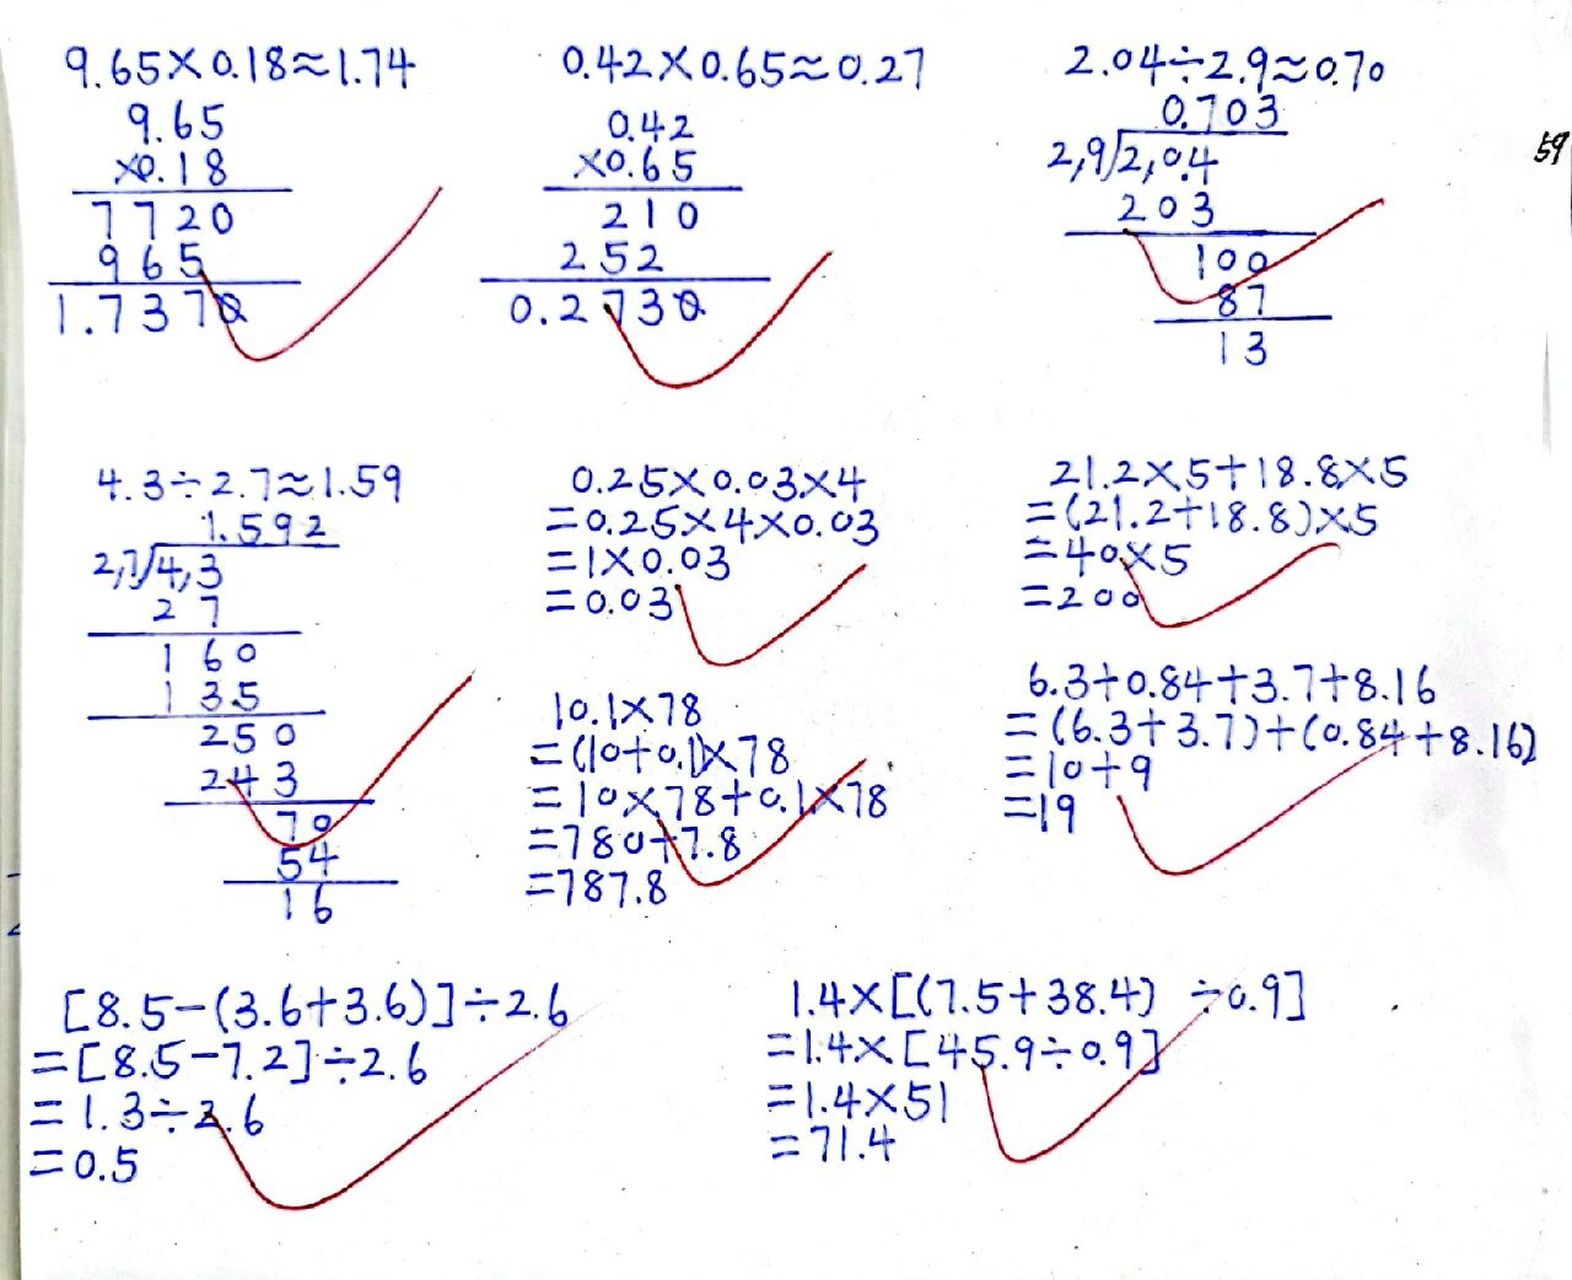 9.65×0.18≈1.74
9.65
×0.18
7720
965
1.7370
0.42×0.65≈0.27
0.42
×0.65
210
252
0.2730
2.04÷2.9≈0.70
0.703
2,9 2,0.4
203
100
87
13
59
4.3÷2.7≈1.59
1.592
2,7 4,3
27
160
135
250
243
70
54
16
0.25×0.03×4
=0.25×4×0.03
=1×0.03
=0.03
21.2×5+18.8×5
=(21.2+18.8)×5
=40×5
=200
10.1×78
=(10+0.1)×78
=10×78+0.1×78
=780+7.8
=787.8
6.3+0.84+3.7+8.16
=(6.3+3.7)+(0.84+8.16)
=10+9
=19
[8.5-(3.6+3.6)]÷2.6
=[8.5-7.2]÷2.6
=1.3÷2.6
=0.5
1.4×[(7.5+38.4) ÷0.9]
=1.4×[45.9÷0.9]
=1.4×51
=71.4